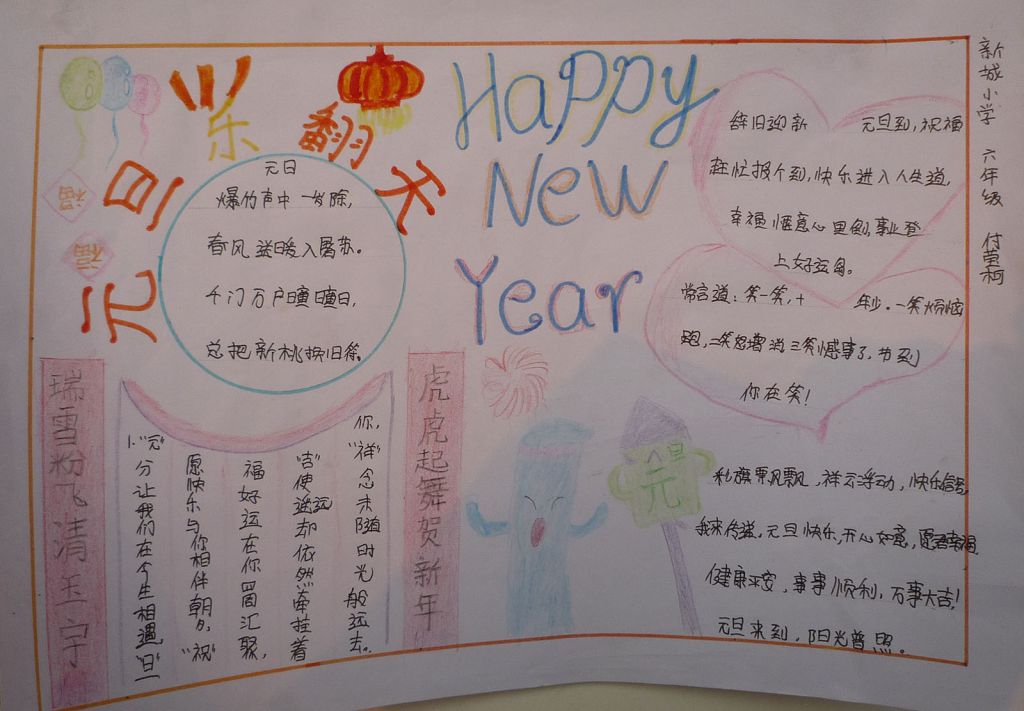 元旦乐翻天
福
福
Happy
New
Year
元日
爆竹声中一岁除,
春风送暖入屠苏。
千门万户曈曈日,
总把新桃换旧符。
辞旧迎新 元旦到,祝福
赶忙报个到,快乐进入人生道,
幸福惬意心里刨,事业登
上好运舟。
常言道:笑一笑,十 年少。一笑烦恼
跑,二笑怒憎消三笑憾事了,
你在笑!
瑞雪纷飞清玉宇
虎虎起舞贺新年
1.“元”
分让我们在今生相遇,“旦”
愿快乐与你相伴朝夕,“祝”
福好运在你四周汇聚,
“吉”使遥远却依然牵挂着
你,“祥”念未随时光般远去。
元旦
彩旗飘飘,祥云浮动,快乐信客
我来传递,元旦快乐,开心如意,愿君幸福
健康平安,事事顺利,万事大吉!
元旦来到,阳光普照。
新城小学 六年级